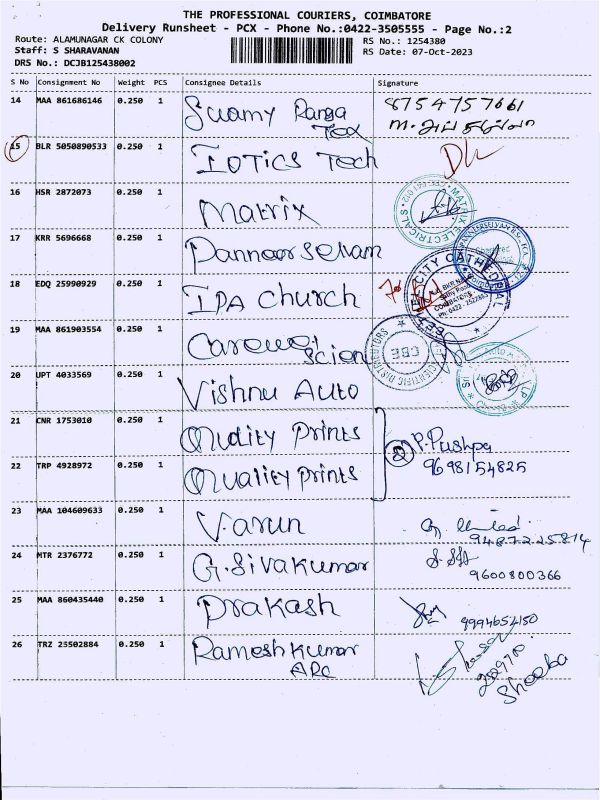 THE PROFESSIONAL COURIERS, COIMBATORE
Delivery Runsheet - PCX - Phone No.:0422-3505555 - Page No.:2
Route: ALAMUNAGAR CK COLONY
RS No.: 1254380
Staff: S SHARAVANAN
RS Date: 07-Oct-2023
DRS No.: DCJB125438002
S No Consignment No Weight PCS Consignee Details Signature
14 MAA 861686146 0.250 1 Swamy Ranga 8754757661
Tex
15 BLR 5050890533 0.250 1 IOTICS Tech
16 HSR 2872073 0.250 1 Matrix
MATRIX ELECTRICALS
17 KRR 5696668 0.250 1 Panneerselvam
18 EDQ 25990929 0.250 1 IPA Church
CITY CATHEDRAL
COIMBATORE
19 MAA 861903554 0.250 1
Scien
SCIENTIFIC DISTRIBUTORS
CBE
20 UPT 4033569 0.250 1 Vishnu Auto
21 CNR 1753010 0.250 1 Quality Prints
P. Pushpa
22 TRP 4928972 0.250 1 Quality Prints 2
9698154825
23 MAA 104609633 0.250 1 Varun
9487225814
24 MTR 2376772 0.250 1 G.Sivakumar
9600800366
25 MAA 860435440 0.250 1 Prakash
9994654150
26 TRZ 25502884 0.250 1 Rameshkumar
ARC
Sheeba